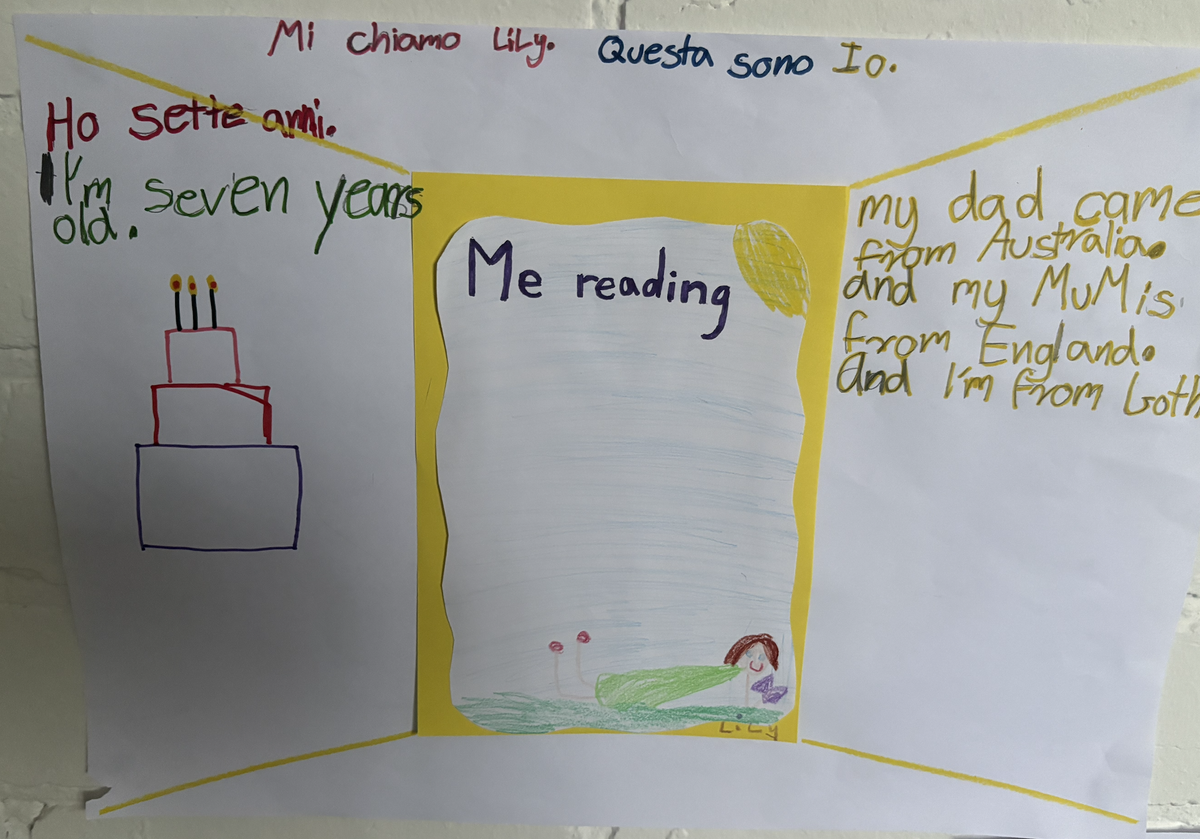 Mi chiamo LiLy. Questa sono Io.
Ho sette anni.
I'm seven years
old.
Me reading
LiLy
my dad came
from Australia.
and my MuM is
from England.
And I'm from both